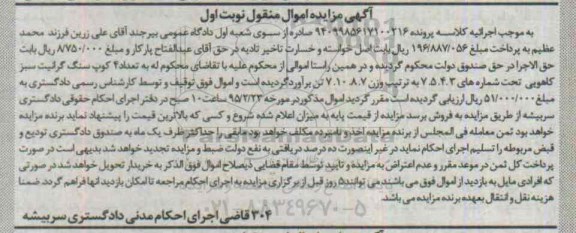 آگهی مزایده اموال منقول نوبت اول
به موجب اجرائیه کلاسه پرونده ۹۴۰۹۹۸۵۶۱۷۱۰۰۲۱۶ صادره از سوی شعبه اول دادگاه عمومی بیرجند آقای علی زرین فرزند محمد
عظیم به پرداخت مبلغ ۱۹۶/۸۸۷/۰۵۶ ریال بابت اصل خواسته و خسارت تاخیر تادیه در حق آقای عبدالفتاح پارکار و مبلغ ۸/۷۵۰/۰۰۰ ریال بابت
حق الاجرا در حق صندوق دولت محکوم گردیده و در همین راستا اموالی از محکوم علیه با تقاضای محکوم له به تعداد ۴ کوپ سنگ گرانیت سبز
کاهویی تحت شماره های ۳.۴.۵.۷ به ترتیب وزن ۸.۷.۱۰.۷ تن برآورد گردیده است و اموال فوق توقیف و توسط کارشناس رسمی دادگستری به
مبلغ ۵۱/۰۰۰/۰۰۰ ریال ارزیابی گردیده است مقرر گردید اموال مذکور در مورخه ۹۵/۲/۲۳ ساعت ۱۰ صبح در دفتر اجرای احکام حقوقی دادگستری
سربیشه از طریق مزایده به فروش برسد مزایده از قیمت پایه به میزان اعلام شده شروع و کسی که بالاترین قیمت را پیشنهاد نماید برنده مزایده
خواهد بود ثمن معامله فی المجلس از برنده مزایده اخذ برنده مکلف خواهد بود مابقی را حداکثر ظرف یک ماه به صندوق دادگستری تودیع و
قبض مربوطه را تسلیم اجرای احکام نماید در غیر اینصورت ده درصد دریافتی به نفع دولت ضبط و مزایده تجدید خواهد شد بدیهی است در صورت
پرداخت کل ثمن در موعد مقرر و عدم اعتراض به مزایده و تایید توسط مقام قضایی ذیصلاح اموال فوق الذکر به خریدار تحویل خواهد شد در صورتی
که افرادی مایل به بازدید از اموال فوق می باشند می توانند ۵ روز قبل از برگزاری مزایده به اجرای احکام مراجعه تا امکان بازدید آنها فراهم گردد ضمنا
هزینه نقل و انتقال بعهده برنده مزایده می باشد.
۰۲۱-۸۸۳۴۹۶۷۰-۵
۳۰۴ قاضی اجرای احکام مدنی دادگستری سربیشه